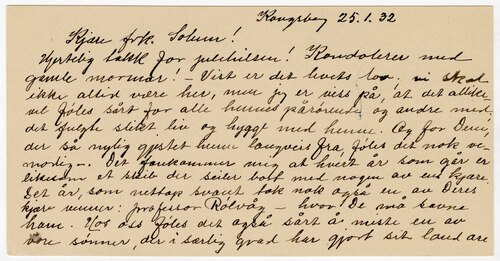 Kongsberg 25.1.32
Kjære frk. Solum!
Hjertelig takk for julehilsen! Kondolerer med
gamle mormor! - Vist er det livets lov. vi skal
ikke alltid være her, men jeg er viss på, at det allike-
vel føles sårt for alle hennes pårørende og andre med;
det fulgte slikt liv og hygge med henne. Og for Dem,
der så nylig gjestet henne langveis fra, føles det nok ve-
modig. Det forekommer mig at hvert år som går er
liksom et skib der seiler bort med nogen av en kjære
Det år, som nettopp svant tok nok også en av Deres
kjære venner: professor Rölvåg - hvor De må savne
ham. For oss føles det også sårt å miste en av
våre sønner, der i særlig grad har gjort sit land ære